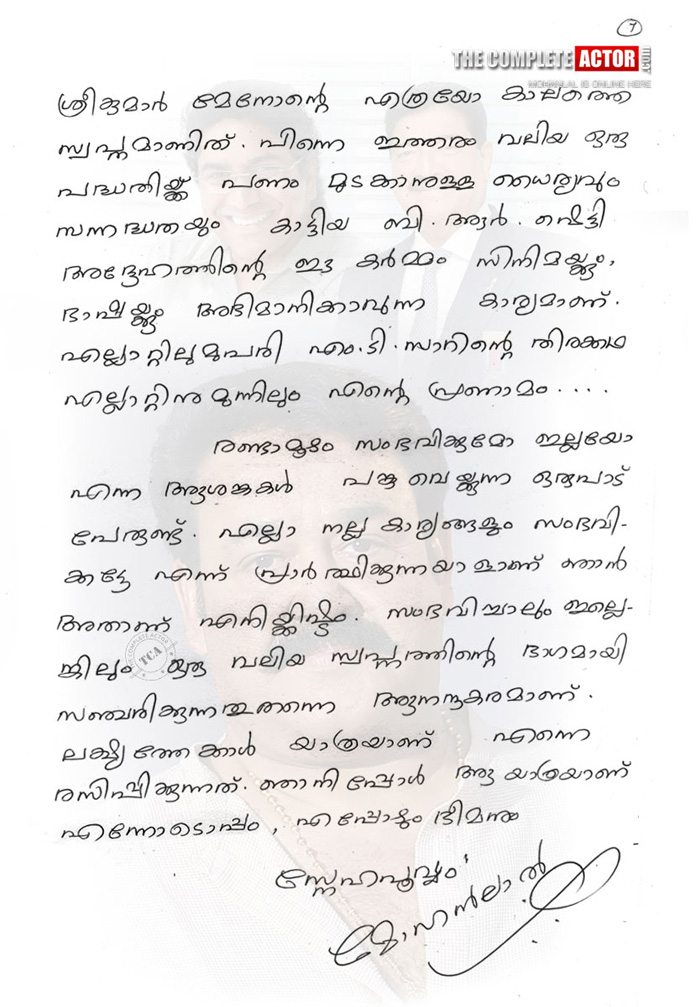 7
THE COMPLETE ACTOR .com
MOHANLAL IS ONLINE HERE
ശ്രീകുമാർ മേനോന്റെ എത്രയോ കാലത്തെ
സ്വപ്നമാണിത്. പിന്നെ ഇത്തരം വലിയ ഒരു
പദ്ധതിയ്ക്ക് പണം മുടക്കാനുള്ള ധൈര്യവും
സന്നദ്ധതയും കാട്ടിയ ബി. ആർ. ഷെട്ടി
അദ്ദേഹത്തിന്റെ ഈ കർമ്മം സിനിമയ്ക്കും,
ഭാഷയ്ക്കും അഭിമാനിക്കാവുന്ന കാര്യമാണ്.
എല്ലാറ്റിലുമുപരി എം.ടി. സാറിന്റെ തിരക്കഥ
എല്ലാറ്റിനു മുന്നിലും എന്റെ പ്രണാമം ....
രണ്ടാമൂഴം സംഭവിക്കുമോ ഇല്ലയോ
എന്ന ആശങ്കകൾ പങ്കു വെയ്ക്കുന്ന ഒരുപാട്
പേരുണ്ട്. എല്ലാ നല്ല കാര്യങ്ങളും സംഭവി-
ക്കട്ടേ എന്ന് പ്രാർത്ഥിക്കുന്നയാളാണ് ഞാൻ
അതാണ് എനിയ്ക്കിഷ്ടം. സംഭവിച്ചാലും ഇല്ലെ-
ങ്കിലും ഒരു വലിയ സ്വപ്നത്തിന്റെ ഭാഗമായി
സഞ്ചരിക്കുന്നതുതന്നെ ആനന്ദകരമാണ്.
ലക്ഷ്യത്തേക്കാൾ യാത്രയാണ് എന്നെ
രസിപ്പിക്കുന്നത്. ഞാനിപ്പോൾ ആ യാത്രയാണ്
എന്നോടൊപ്പം, എപ്പോഴും ഭീമനും
സ്നേഹപൂർവ്വം
മോഹൻലാൽ
THE COMPLETE ACTOR
TCA